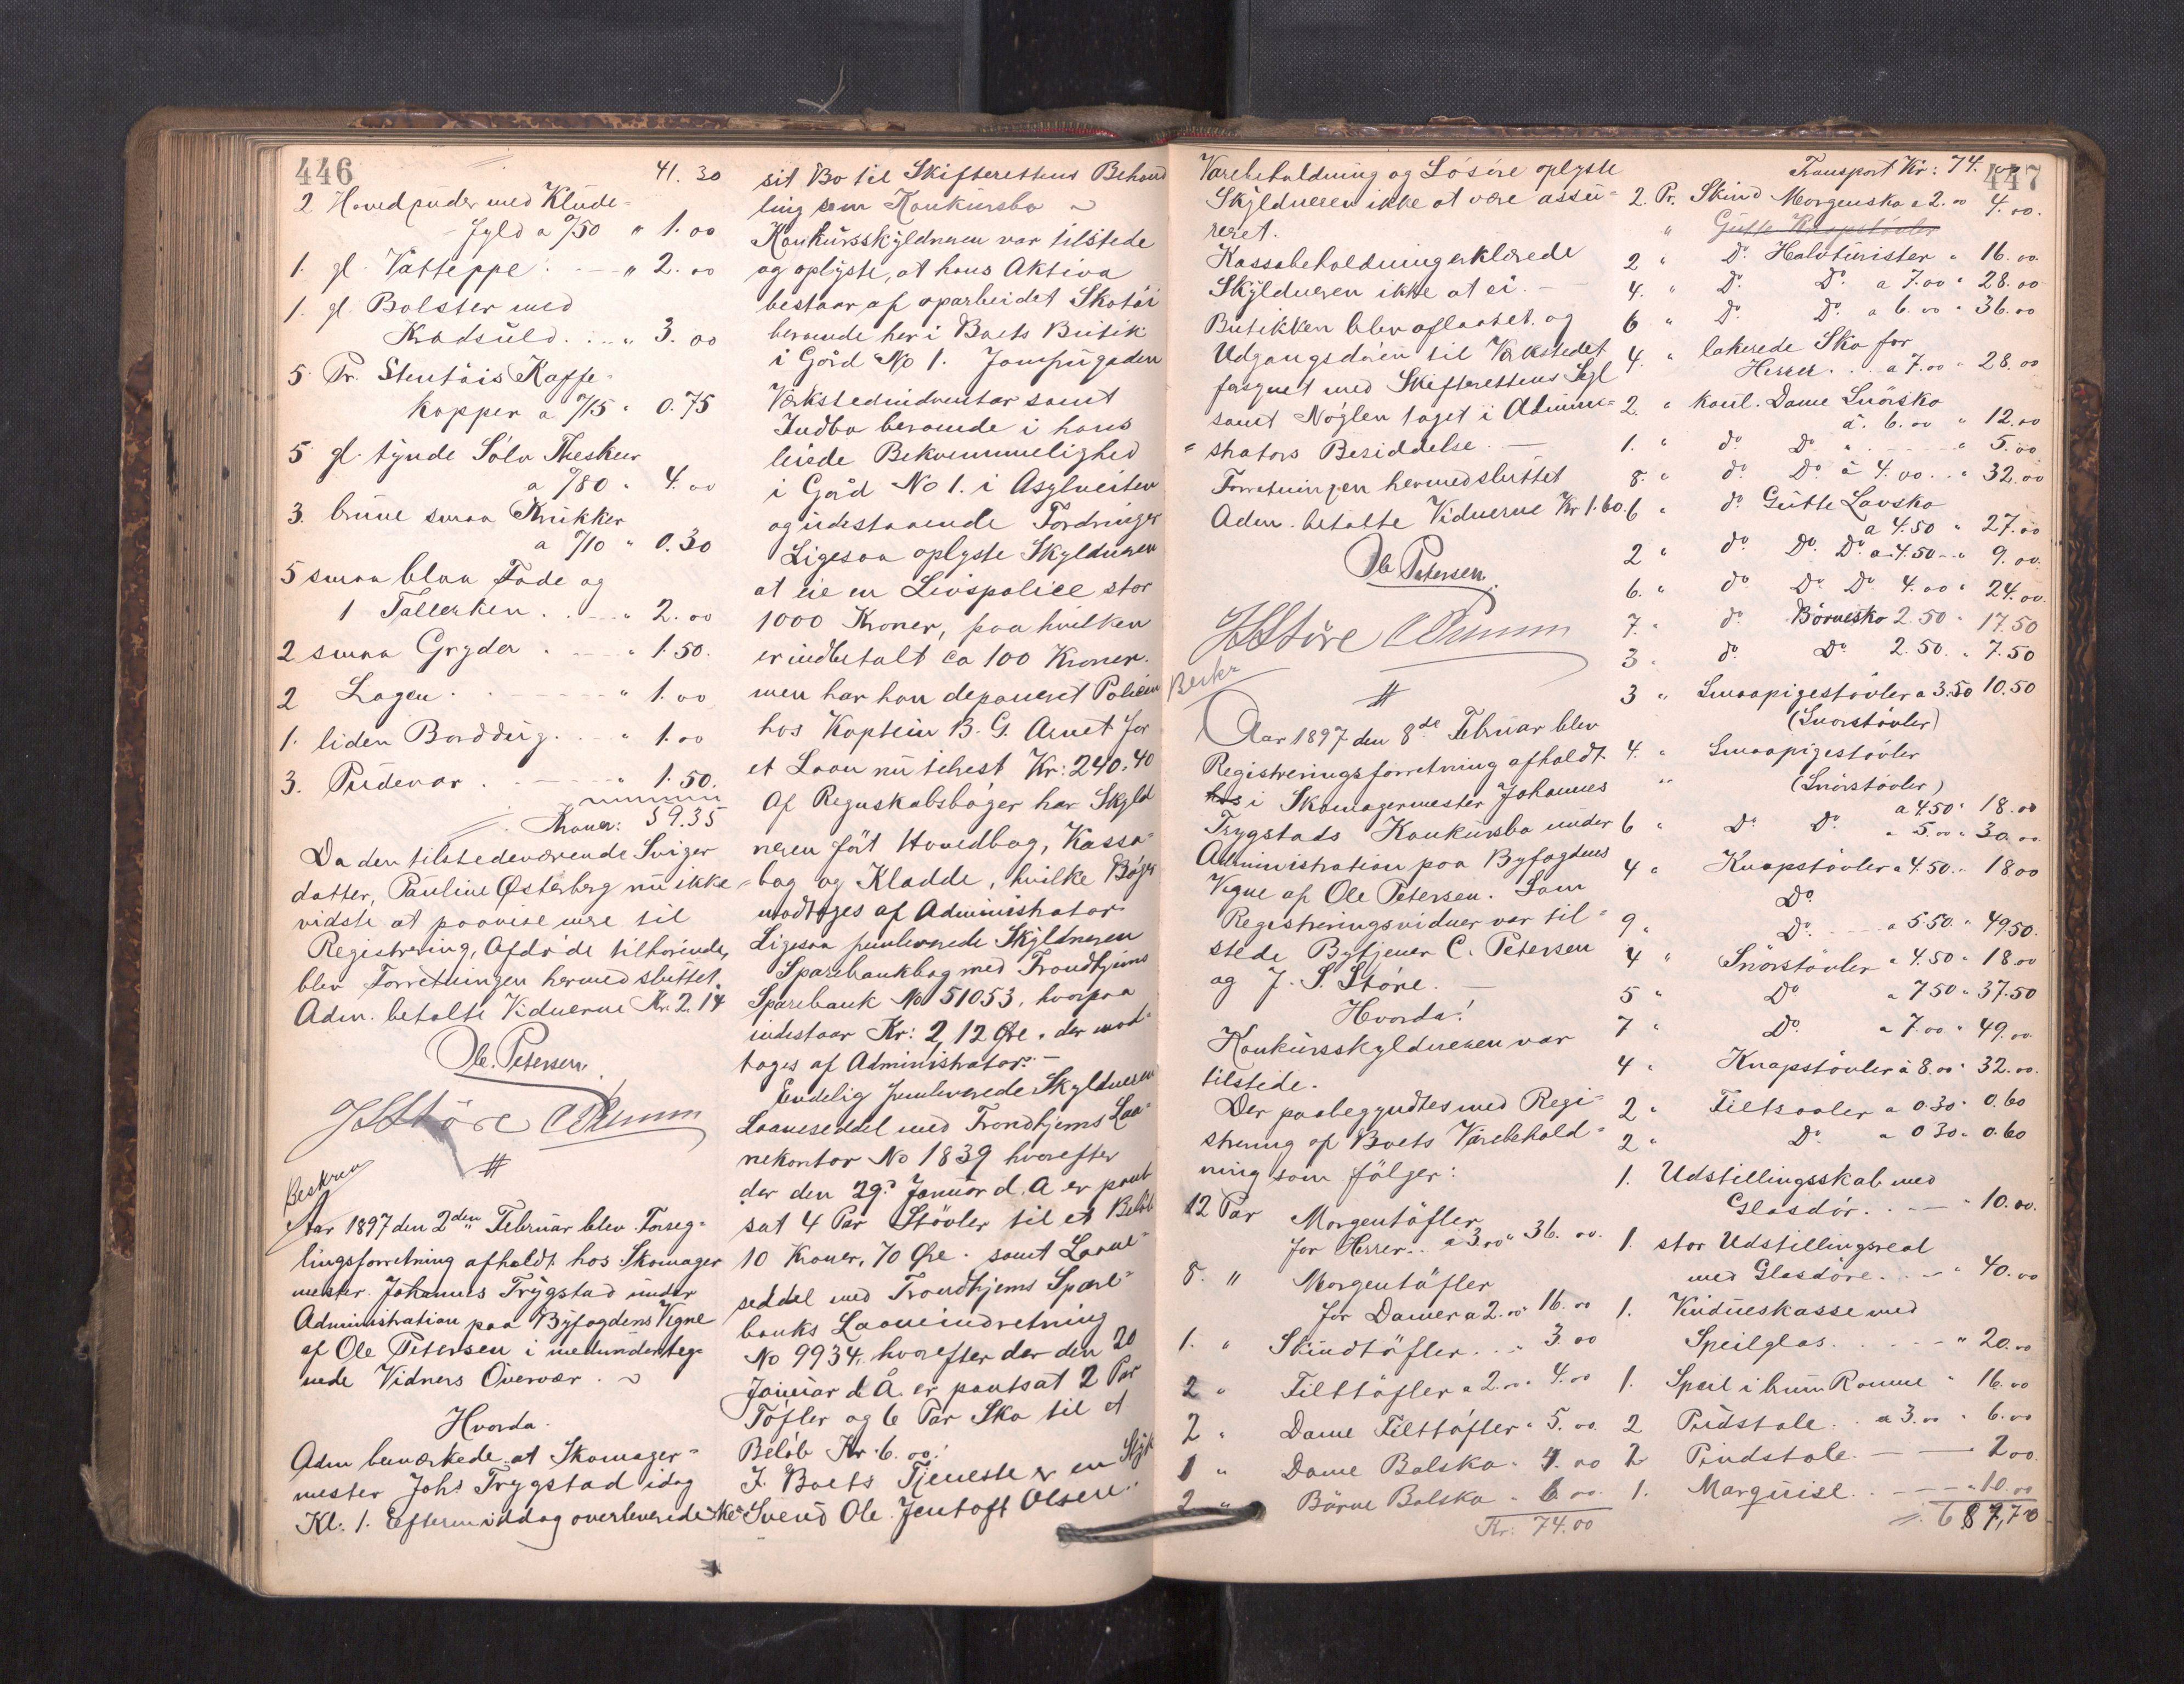 446
41.30
2 Hovedpuder med Klude-
fyld a %50 " 1.00
1. gl. Vatteppe . — " 2.00
1. gl. Bolster med
Kradsuld. . . " 3.00
5 Pr. Stentöis Kaffe-
kopper a %15 " 0.75
5 gl. tynde Sölv Theskeer
a %80 " 4.00
3. brune smaa Krukker
a %10 " 0.30
5 smaa blaa Fade og
1 Tallerken . . — " 2.00
2 smaa Gryder . — " 1.50.
2 Lagen . — " 1.00
1. liden Borddug . . — " 1.00
3. Pudevar . — " 1.50.
Kroner: 59.35
Da den tilstedeværende Sviger
datter, Pauline Østerberg nu ikke
vidste at paavise mere til
Registrering, Afdöde tilhörende,
blev Forretningen hermed sluttet.
Adm. betalte Vidnerne Kr. 2.14
Ole Petersen.
J S Störe
#
Beskreven
Aar 1897 den 2den Februar blev Forseg-
lingsforretning afholdt hos Skomager
mester Johannes Trygstad under
Administration paa Byfogdens Vegne
af Ole Petersen i medunderteg-
nede Vidners Overvær.
Hvorda.
Adm bemærkede at Skomager-
mester Johs Trygstad idag
Kl. 1. Eftermiddag overleverede
sit Bo til Skifterettens Behand
ling som Konkursbo
Konkursskyldneren var tilstede
og oplyste, at hans Aktiva
bestaar af oparbeidet Skotöi
beroende her i Boets Butik
i Gård No 1. Jomfrugaden
Værkstedindventar samt
Indbo beroende i hans
leiede Bekvemmelighed
i Gård No 1. i Asylveiten
og udestaaende Fordringer
Ligesaa oplyste Skyldneren
at eie en Livspolice stor
1000 Kroner, paa hvilken
er indbetalt ca 100 Kroner.
men har han deponeret Policen
hos Kaptein B. G. Arnet for
et Laan nu tilrest Kr: 240.40
Af Regnskabsböger har Skyld
neren fört Hovedbog, Kassa-
bog og Kladde, hvilke Böger
modtoges af Administrator
Ligesaa fremleverede Skyldneren
Sparebankbog med Trondhjems
Sparebank No 51053, hvorpaa
indestaar Kr: 2,12 Øre. der mod-
toges af Administrator. —
Endelig fremleverede Skyldneren
Laaneseddel med Trondhjems Laa-
nekontor No 1839 hvorefter
der den 29d Januar d. A er pant
sat 4 Par Stövler til et Belöb
10 Kroner, 70 Øre. samt Laane-
seddel med Trondhjems Spare-
banks Laaneindretning
No 9934, hvorefter der den 20
Januar d Å. er pantsat 2 Par
Töfler og 6 Par Sko til et
Belöb Kr. 6.00.
I Boets Tjeneste er en
Svend Ole Jentoft Olsen.
447
Varebeholdning og Lösöre oplyste
Skyldneren ikke at være assu-
reret.
Kassabeholdning erklærede
Skyldneren ikke at ei. —
Butikken blev aflaaset og
Udgangsdören til Værkstedet
forsynet med Skifterettens Segl
samt Nöglen taget i Admini-
strators Besiddelse. —
Forretningen hermed sluttet
Adm. betalte Vidnerne Kr 1.60.
Ole Petersen.
J S Störe
Beskr
#
Aar 1897 den 8de Februar blev
Registreringsforretning afholdt
hos i Skomagermester Johannes
Trygstads Konkursbo under
Administration paa Byfogdens
Vegne af Ole Petersen. Som
Registreringsvidner var til-
stede Bytjener C. Petersen
og J. S. Störe. —
Hvorda!
Konkursskyldneren var
tilstede.
Der paabegyndtes med Regi-
strering af Boets Varebehold-
ning som fölger:
12 Par Morgentöfler
for Herrer. . a 3.00 " 36.00.
8. " Morgentöfler
for Damer a 2.00 " 16.00
1. " Skindtöfler. . . " 3.00
2 " Filttöfler a 2.00 " 4.00
2 " Dame Filttöfler " 5.00.
1 " Dame Balsko. " 4.00
2 " Börne Balsko " 6.00.
Kr: 74.00
Transport Kr: 74.00
2. Pr. Skind Morgensko a 2.00 4.00.
" Gutte Knapstövler
2 " Do. Halvturister " 16.00.
4. " Do. Do. a 7.00 " 28.00
6 " Do. Do. a 6.00 " 36.00
4. " lakerede Sko for
Herrer. . . a 7.00 " 28.00
2. " Dame Snörsko
a. 6.00 " 12.00
1. " do Do " " 5.00
8. " do. Do. à 4.00. . " 32.00
6 " do. Gutte Lavsko
a 4.50 " 27.00
2 " do. Do. Do. a 4.50 — " 9.00.
6. " do Do. Do. 4.00 " 24.00.
7. " do. Börnesko 2.50 " 17.50
3 " do. Do. 2.50. " 7.50
3 " Smaapigestövler a 3.50 10.50
(Snorstövler)
4. " Smaapigestövler
" (Snörstövler)
a 4.50 " 18.00
6 " Do. Do. " 5.00 " 30.00.
4 " Knapstövler a 4.50. " 18.00
Do.
9 " Do. — a 5.50. " 49.50.
4 " Snörstövler " 4.50 " 18.00
5 " Do " 7.50 " 37.50
7 " Do. a 7.00 " 49.00
4 " Knapstövler à 8.00 " 32.00.
2 " Filtsaaler a 0.30 " 0.60
2 " Do. " 0.30 " 0.60
1. Udstillingsskab med
Glasdör. . . — " 10.00.
1. stor Udstillingsreal
med Glasdöre. . — " 40.00
1. Vindueskasse med
Speilglas. . — " 20.00
1. Speil i brun Ramme " 16.00
2 Pudstole. . a 3.00 " 6.00
2 Pindstole. — — 2.00.
1. Marquise. . — — " 10.00
687,70